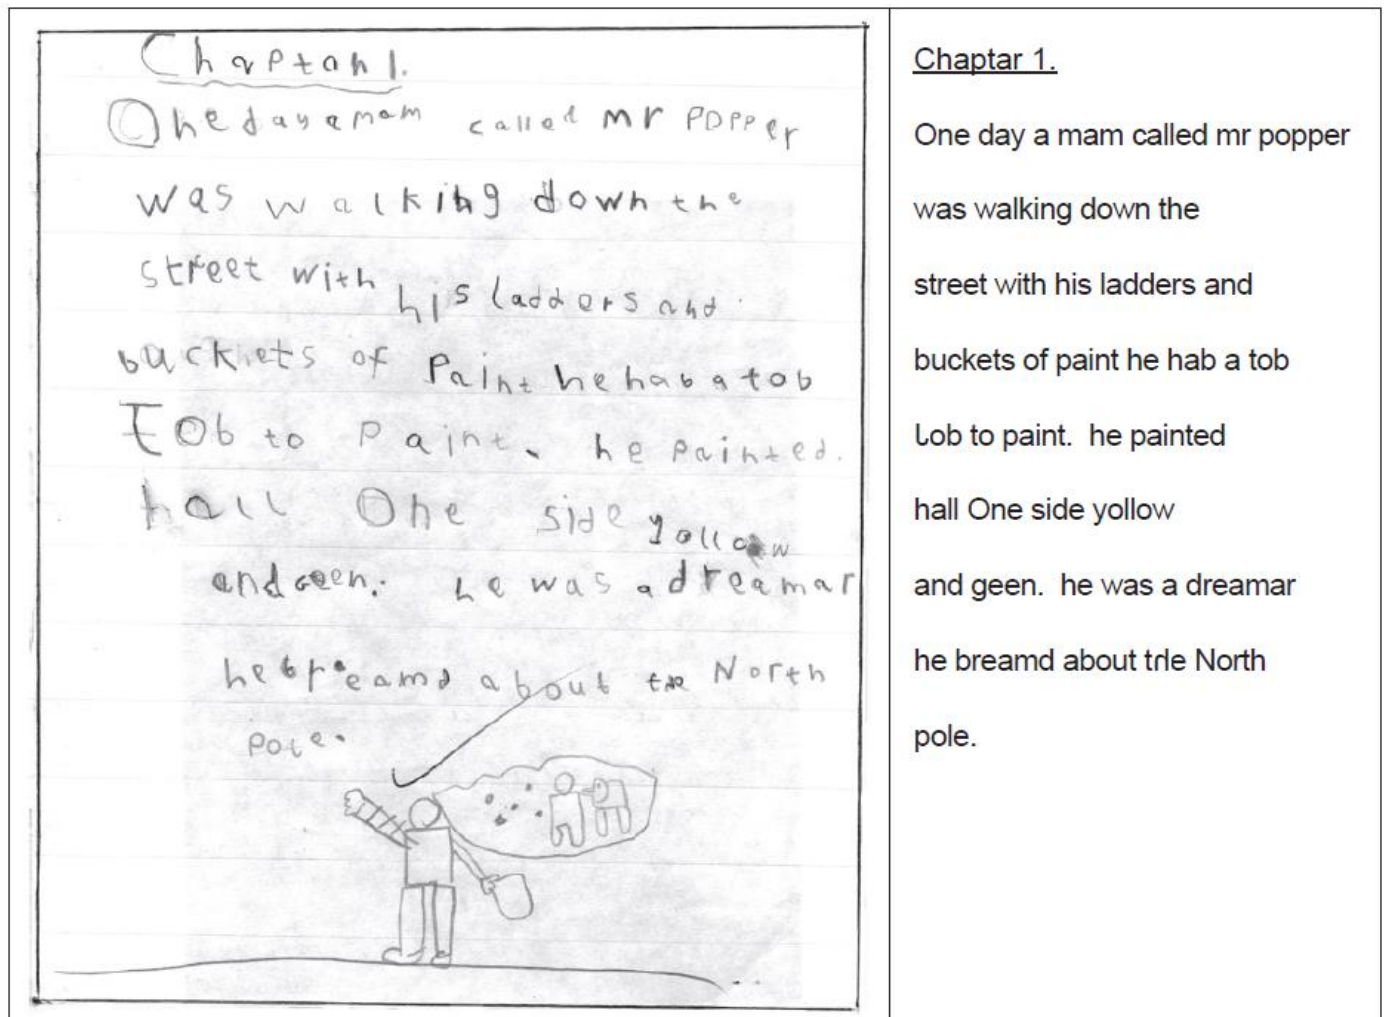 Chaptah 1.
One day a mam called mr Popper
was walking down the
street with his ladders and
buckhets of Paint he hab a tob
tob to Paint. he Painted.
hall One side yollow
and geen. he was a dreamar
he breamd about the North
Pole.
Chaptar 1.
One day a mam called mr popper
was walking down the
street with his ladders and
buckets of paint he hab a tob
Lob to paint. he painted
hall One side yollow
and geen. he was a dreamar
he breamd about trle North
pole.